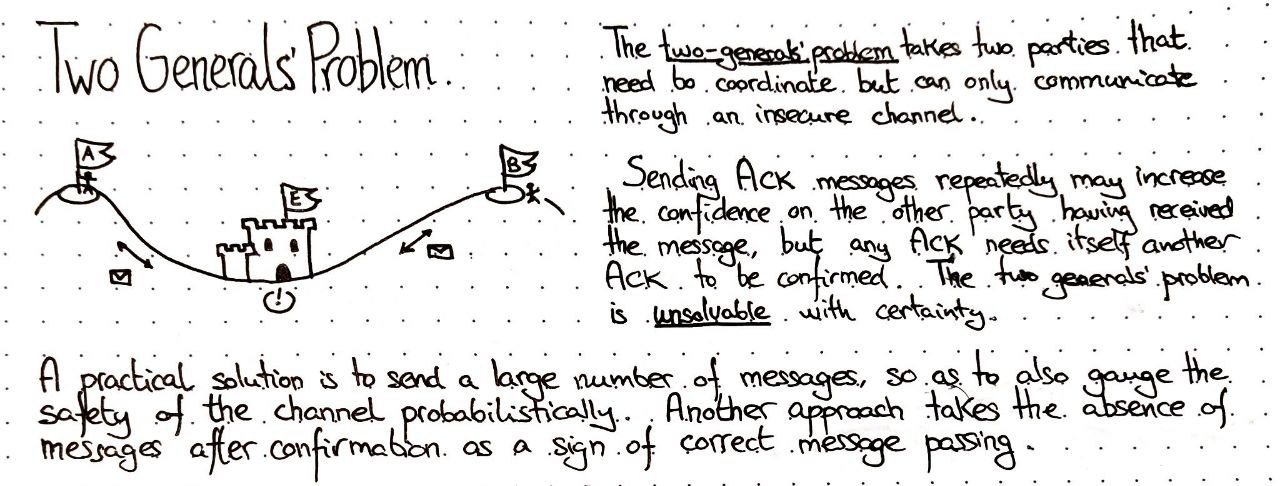 Two Generals' Problem.
The two-generals' problem takes two parties that
need to coordinate but can only communicate
through an insecure channel.
A
B
E
(!)
Sending Ack messages repeatedly may increase
the confidence on the other party having received
the message, but any Ack needs itself another
Ack to be confirmed. The two generals' problem
is unsolvable with certainty.
A practical solution is to send a large number of messages, so as to also gauge the
safety of the channel probabilistically. Another approach takes the absence of
messages after confirmation as a sign of correct message passing.